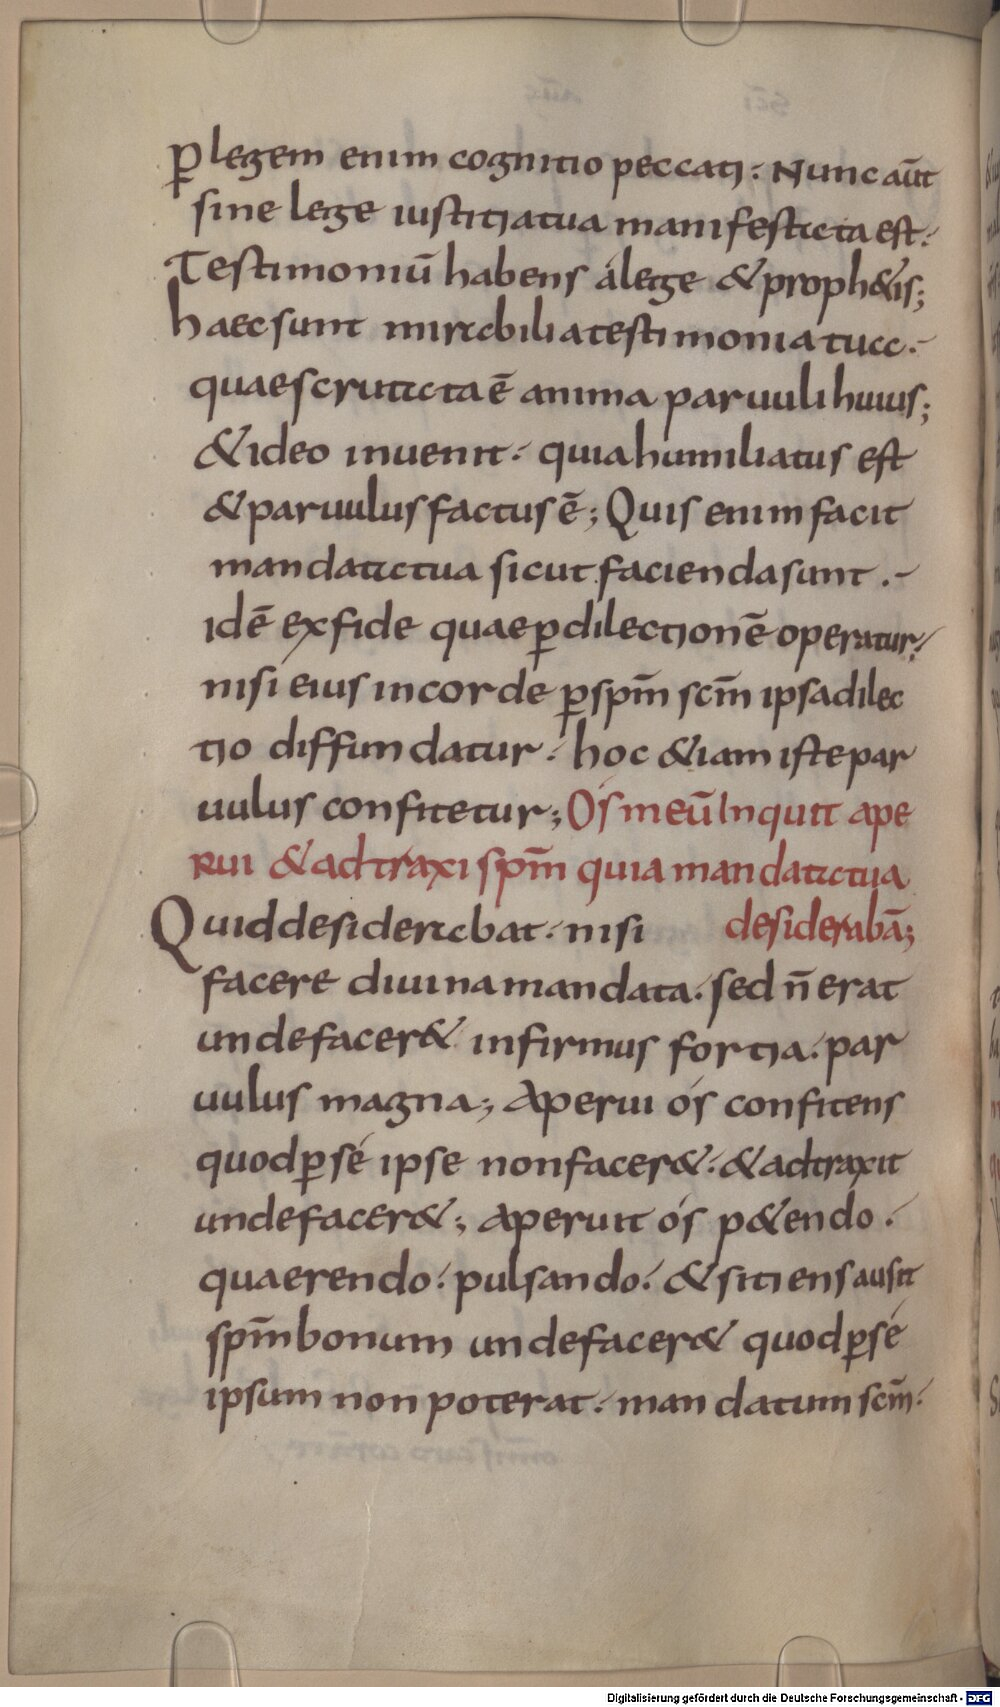 p̱ legem enim cognitio peccati: Nunc aūt
sine lege iustitia tua manifestata est:
Testimoniū habens a lege & proph&is;
haec sunt mirabilia testimonia tua.
quae scrutata ē anima paruuli huius;
& ideo inuenit. quia humiliatus est
& paruulus factus ē; Quis enim facit
mandata tua sicut facienda sunt.
id ē ex fide quae p̱ dilectionē operatur.
nisi eius in corde p̱ sp̄m sc̄m ipsa dilec
tio diffundatur. hoc &iam iste par
uulus confitetur; Os meū Inquit ape
Rui & adtraxi sp̄m quia mandata tua
Quid desiderabat. nisi desiderabā;
facere diuina mandata. sed n̄ erat
unde facer& infirmus fortia. par
uulus magna; Aperui ós confitens
quod p̱ sé ipse non facer&: & adtraxit
unde facer&; Aperuit ós p&endo.
quaerendo. pulsando. & sitiens ausit
sp̄m bonum unde facer& quod p̱ sé
ipsum non poterat. mandatum sc̄m.
Digitalisierung gefördert durch die Deutsche Forschungsgemeinschaft - DFG